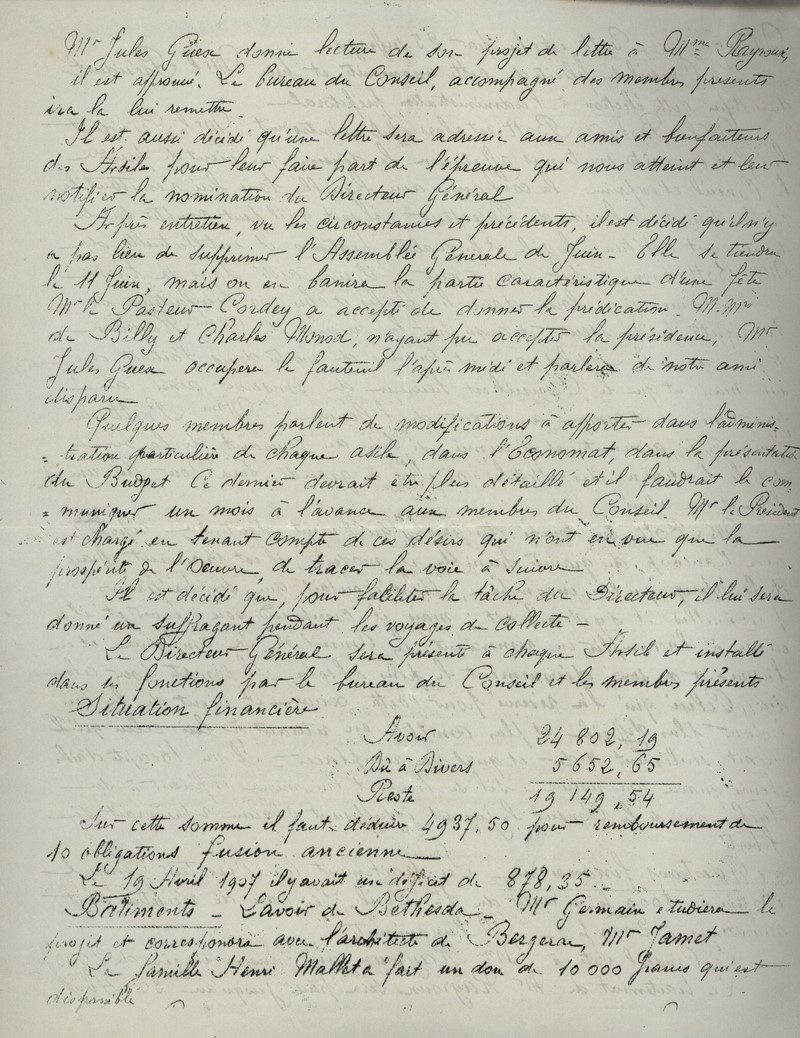 Mr Jules Guex donne lecture de son projet de lettre à Mme Rayroux,
il est approuvé. Le bureau du Conseil, accompagné des membres présents
ira la lui remettre.
Il est aussi décidé qu'une lettre sera adressée aux amis et bienfaiteurs
des Asiles pour leur faire part de l'épreuve qui nous atteint et leur
notifier la nomination du Directeur Général
Après entretien, vu les circonstances et précédents, il est décidé qu'il n'y
a pas lieu de supprimer l'Assemblée Générale de Juin - Elle se tiendra
le 11 Juin, mais on en banira la partie caractéristique d'une fête
Mr le Pasteur Cordey a accepté de donner la prédication. M.Mrs
de Billy et Charles Monod, n'ayant pu accepter la présidence, Mr
Jules Guex occupera le fauteuil l'après midi et parlera de notre ami
disparu
Quelques membres parlent de modifications à apporter dans l'adminis-
= tration particulière de chaque asile, dans l'Economat, dans la présentation
du Budget Ce dernier devrait être plus détaillé et il faudrait le com
= muniquer un mois à l'avance aux membres du Conseil. Mr le Président
est chargé en tenant compte de ces désirs qui n'ont en vue que la
prospérité de l'Oeuvre, de tracer la voie à suivre
Il est décidé que, pour faciliter la tâche du Directeur, il lui sera
donné un suffragant pendant les voyages de collecte -
Le Directeur Général sera présenté à chaque Asile et installé
dans ses fonctions par le bureau du Conseil et les membres présents
Situation financière
Avoir 24 802, 19
Dû à Divers 5 652, 65
Reste 19 149, 54
Sur cette somme il faut déduire 4937,50 pour remboursement de
10 obligations fusion ancienne
Le 19 Avril 1907 il y avait un déficit de 878,35.-
Bâtiments - Lavoir de Béthesda - Mr Germain étudiera le
projet et correspondra avec l'architecte de Bergerac, Mr Jamet
La famille Henri Mallet a fait un don de 10 000 francs qui est
disponible